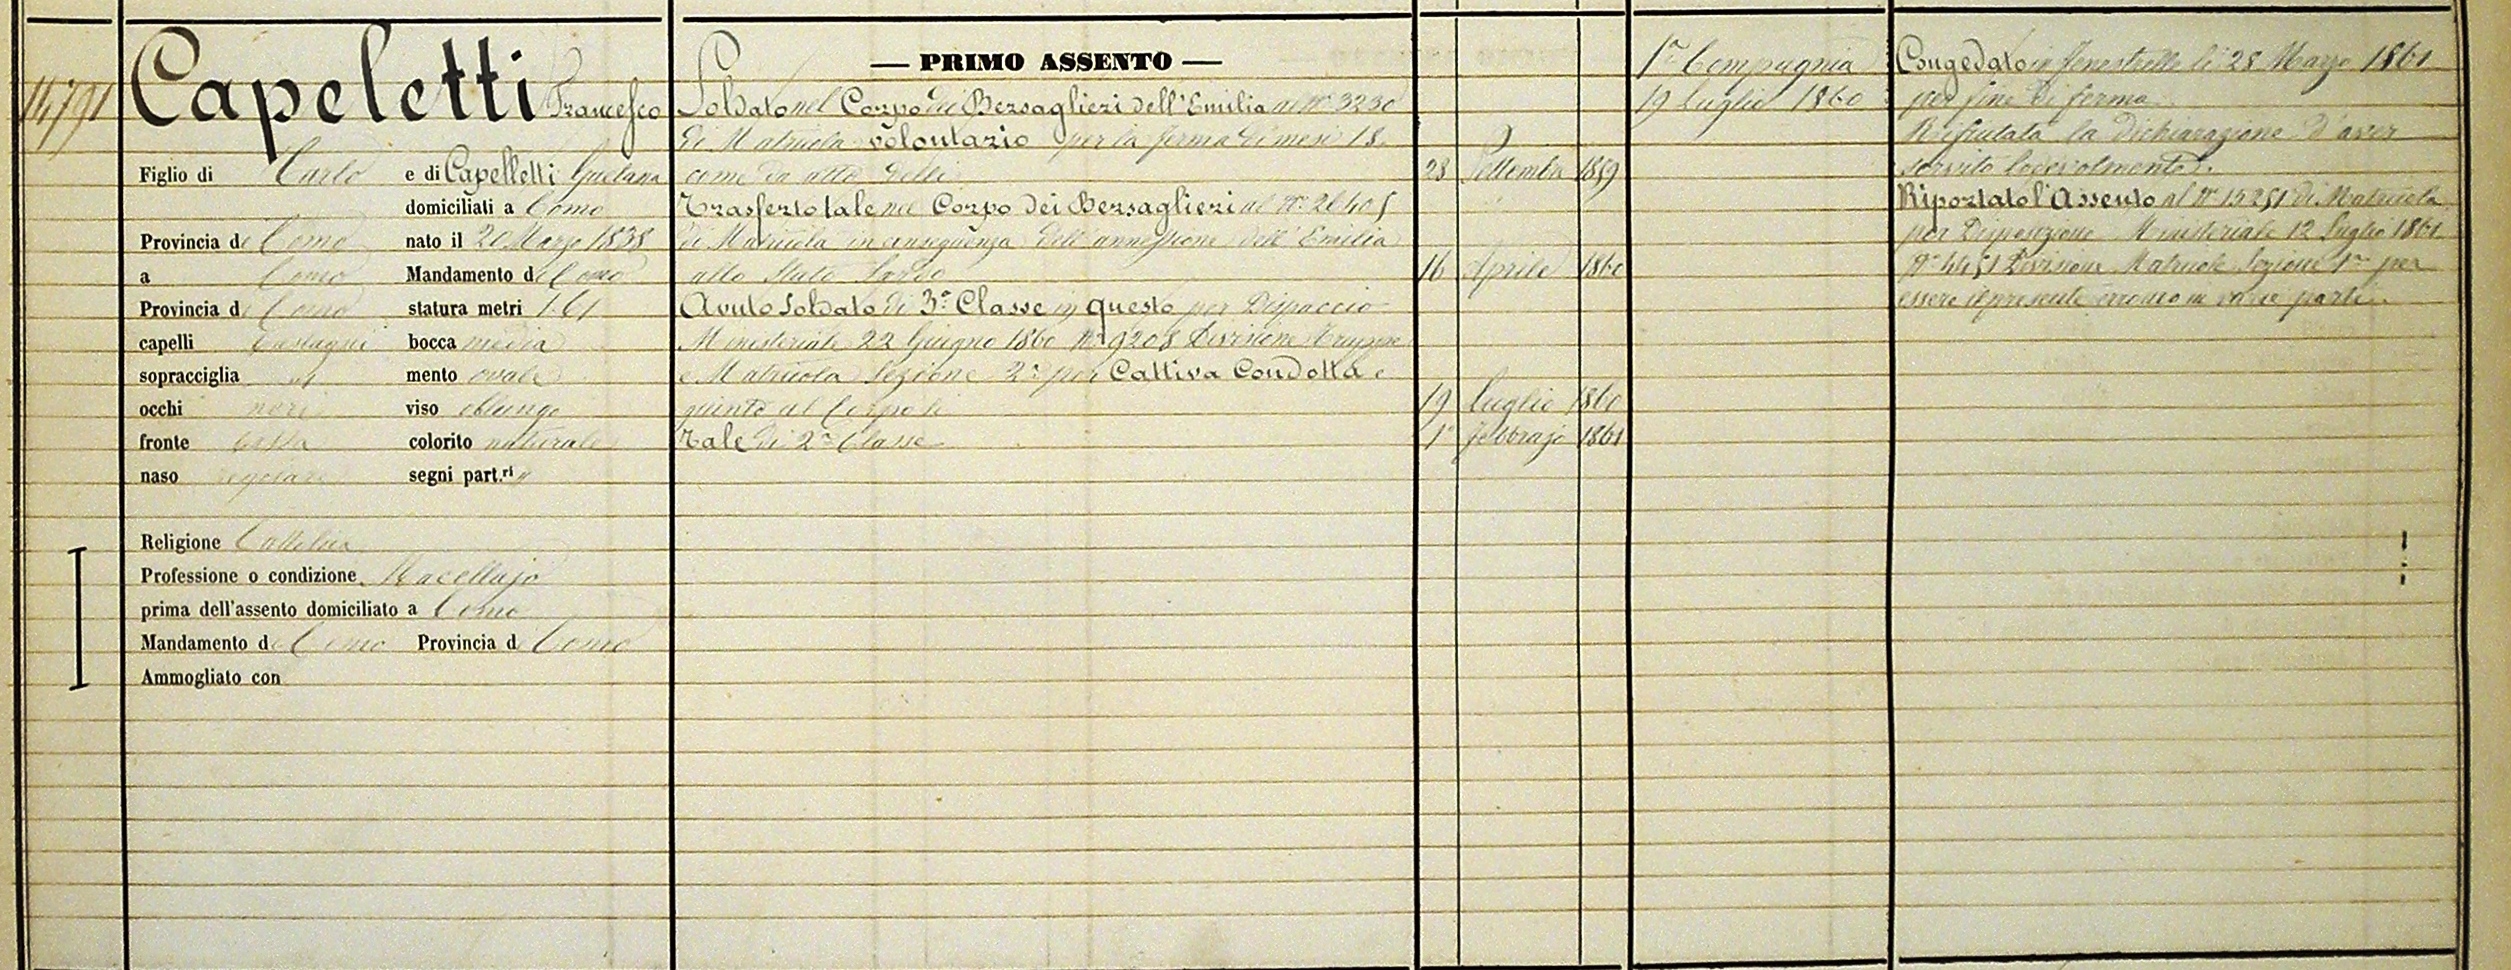 14791
Capeletti Francesco
Figlio di Carlo e di Capelletti Gaetana
domiciliati a Como
Provincia di Como nato il 20 Marzo 1838
a Como Mandamento di Como
Provincia di Como statura metri 1.61
capelli Castagni bocca media
sopracciglia id mento ovale
occhi neri viso oblungo
fronte bassa colorito naturale
naso regolare segni part.ri "
Religione Cattolica
Professione o condizione Macellajo
prima dell'assento domiciliato a Como
Mandamento di Como Provincia di Como
Ammogliato con
— PRIMO ASSENTO —
Soldato nel Corpo dei Bersaglieri dell'Emilia al No. 3230
di Matricola volontario per la ferma di mesi 18
come da atto delli 28 Settembre 1859
Trasferto tale nel Corpo dei Bersaglieri al No. 26405
di Matricola in conseguenza dell'annessione dell'Emilia
allo Stato Sardo 16 Aprile 1860
Avuto Soldato di 3a Classe in questo per Dispaccio
Ministeriale 22 Giugno 1860 No. 9208 Divisione Truppe
e Matricola Sezione 2a per Cattiva Condotta e
giunto al Corpo li 19 Luglio 1860
Tale di 2a Classe 1o Febbrajo 1861
1a Compagnia
19 Luglio 1860
Congedato in Fenestrelle li 28 Marzo 1861
per fine di ferma
Rifiutata la dichiarazione d'aver
servito lodevolmente.
Riportato l'Assento al No 15251 di Matricola
per Disposizione Ministeriale 12 Luglio 1861
No 4451 Divisione Matricole Sezione 1a per
essere il presente erroneo in varie parti.